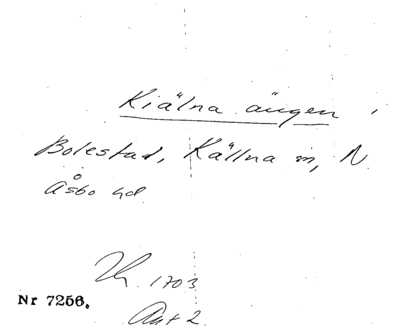 Kiälna ängen i
Bolestad, Källna sn, N.
Åsbo hd.
1703
Nr 7256.
Ant 2.